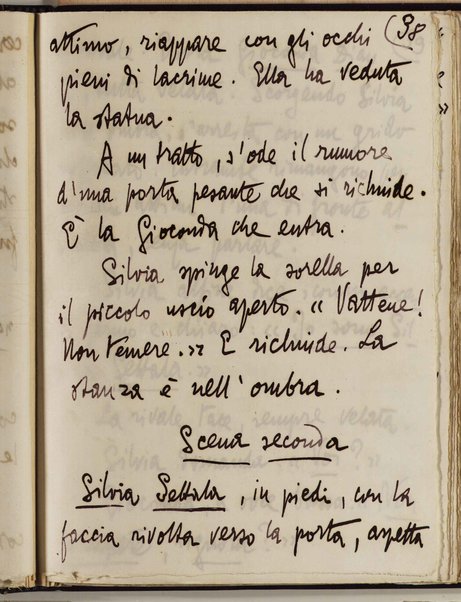 (38
attimo, riappare con gli occhi
pieni di lacrime. Ella ha veduta
la statua.
A un tratto, s'ode il rumore
d'una porta pesante che si richiude.
È la Gioconda che entra.
Silvia spinge la sorella per
il piccolo uscio aperto. « Vattene!
Non temere. » E richiude. La
stanza è nell'ombra.
Scena seconda
Silvia Settala, in piedi, con la
faccia rivolta verso la porta, aspetta